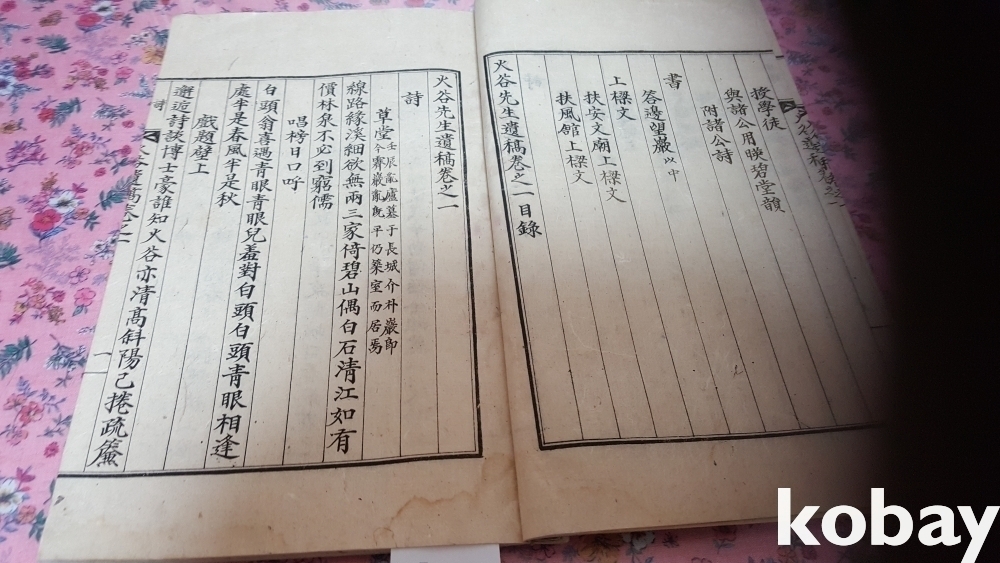 投學徒
與諸公用映碧堂韻
附諸公詩
書
答邊望巖以中
上樑文
扶安文廟上樑文
扶風館上樑文
火谷先生遺稿卷之一目錄
火谷先生遺稿卷之一
詩
草堂壬辰亂廬墓于長城介朴巖即
今霽巖亂既平仍築室而居焉
線路緣溪細欲無兩三家倚碧山偶白石清江如有
價林泉不必到窮儒
唱榜日口呼
白頭翁喜遇青眼青眼兒羞對白頭白頭青眼相逢
處半是春風半是秋
戲題壁上
邂逅詩談博士豪誰知火谷亦清高斜陽已捲疏簾
一
kobay